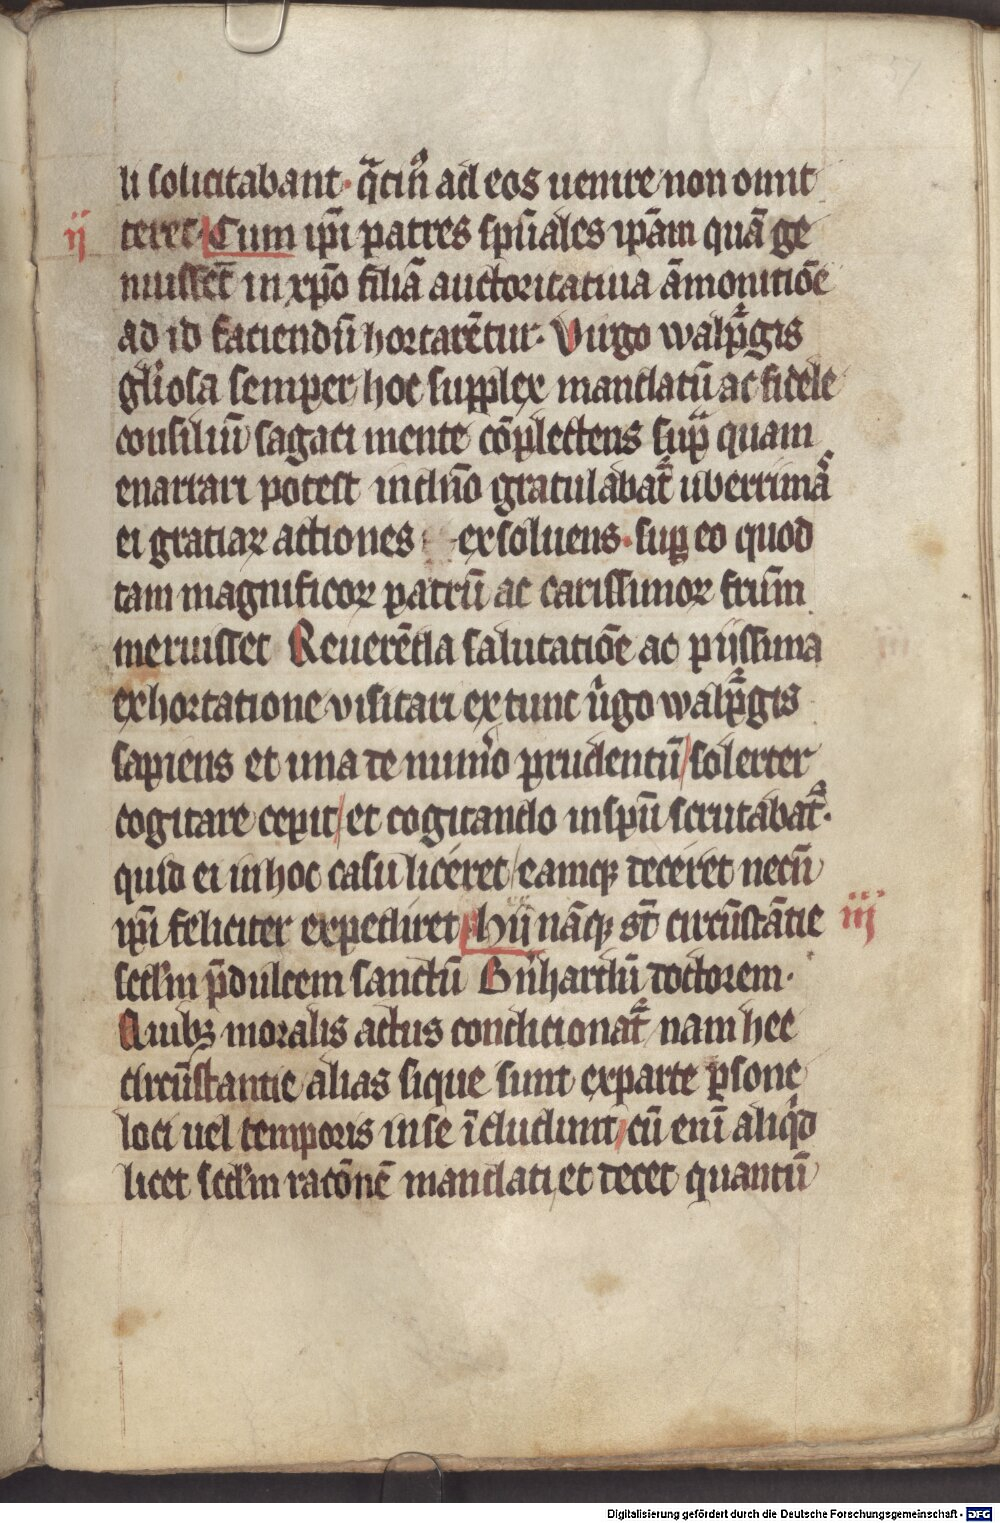 li solicitabant · q̄ti̅n ad eos uenire non omit
ij
teret · Cum ip̄i patres sp̄uales ip̄am quā ge
nuissēt in xp̄o filiā auctoritatiua āmonitiōe
ad id faciendū hortarētur · Virgo walpᷓgis
gl̄iosa semper hoc supplex mandatū ac fidele
consiliū sagaci mente cō̄plectens supᷓ quam
enarrari potest in dn̄o gratulabat᷑ uberrimā
ei gratiaꝝ actiones exsoluens · suꝑ eo quod
tam magnificoꝝ patrū ac carissimoꝝ frūm
meruisset Reuerēda salutatiōe ac pijssima
exhortatione visitari ex tunc v̓go walpᷓgis
sapiens et una de nūm̓o prudentū / solerter
cogitare cepit / et cogitando in sp̄u scrutabat᷑ ·
quid ei in hoc casu liceret / eamqꝫ deceret necn̄
ip̄i feliciter expediret Hij nāqꝫ st̄ circūstātie
iij
scd̄m p̄dulcem sanctū Bn̄hardū doctorem ·
Quibꝫ moralis actus condicionat᷑ nam hee
circūstantie alias si que sunt ex parte ꝑsone
loci uel temporis in se īcludunt / cū enī aliqͥd
licet scd̄m racōnē mandati et decet quantū
Digitalisierung gefördert durch die Deutsche Forschungsgemeinschaft - DFG